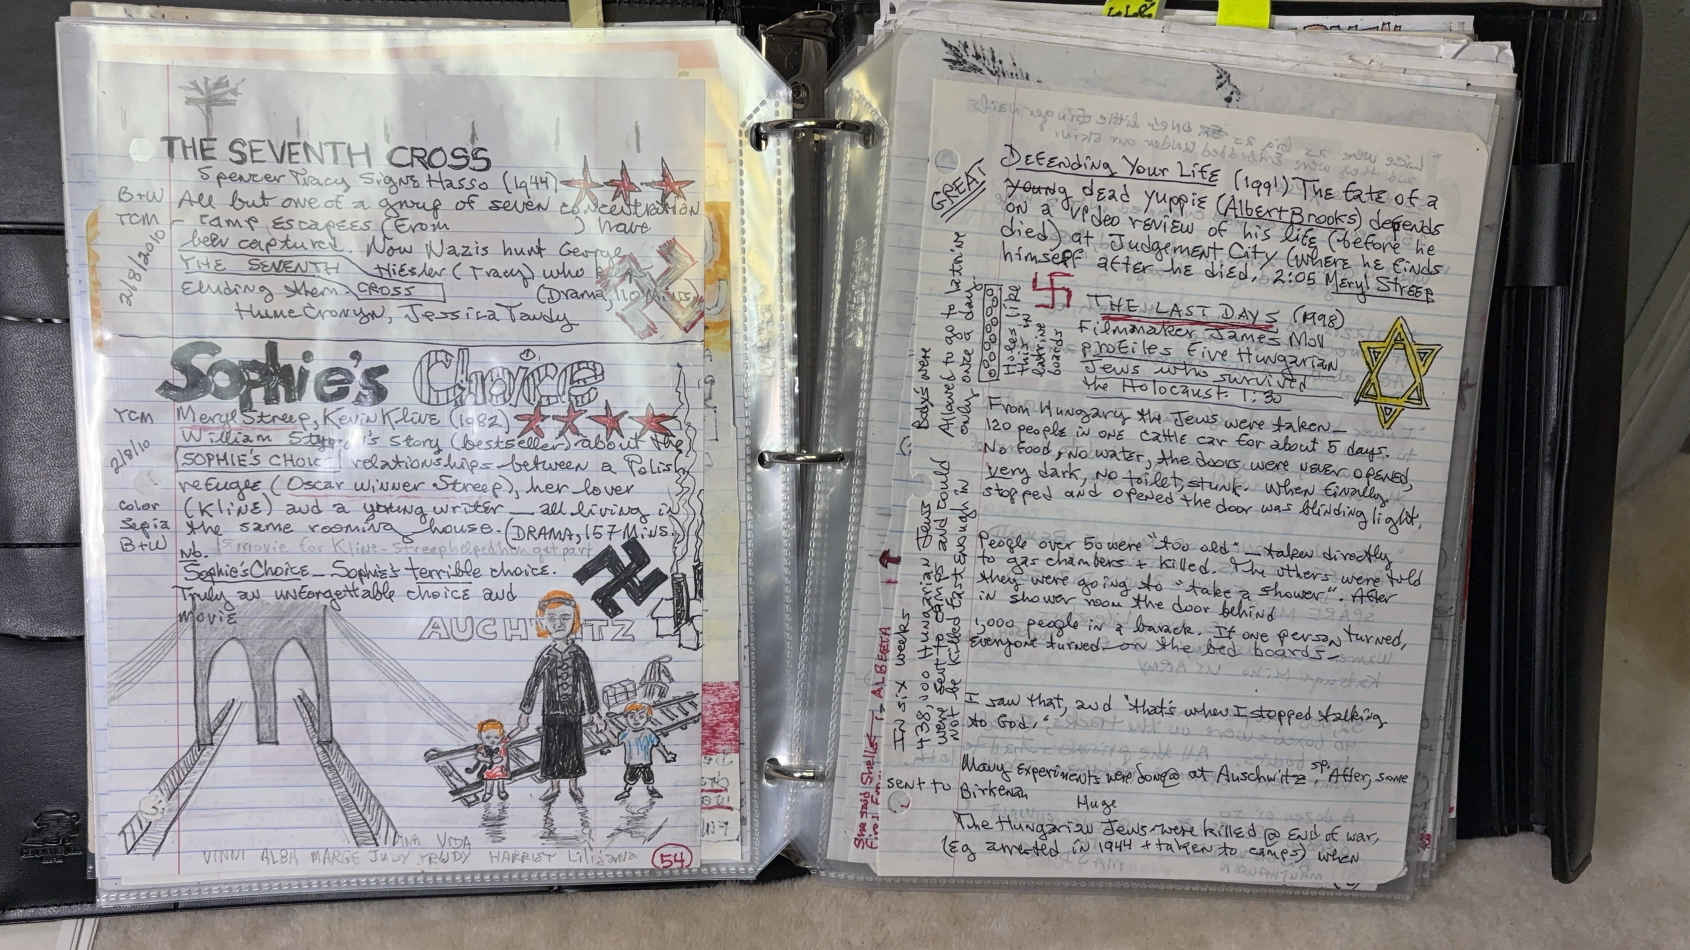 THE SEVENTH CROSS
Spencer Tracy Signe Hasso (1944)
B+W
TCM
2/8/2010
All but one of a group of seven concentration
camp escapees (From ) have
been captured. Now Nazis hunt George
THE SEVENTH Hiesler (Tracy) who is
Eluding them. CROSS (Drama, 110 Mins)
Hume Cronyn, Jessica Tandy
Sophie's Choice
TCM
2/8/10
Color
Sepia
B+W
Meryl Streep, Kevin Klive (1982)
William Styron's story (bestseller) about the
SOPHIE'S CHOICE relationships between a Polish
refugee (Oscar winner Streep), her lover
(Kline) and a young writer — all living in
the same rooming house. (DRAMA, 157 Mins.
Nb. 1st movie for Kline - Streep helped him get part
Sophie'sChoice — Sophie's terrible choice.
Truly an unforgettable choice and
movie
AUCHWITZ
VIDA
VINNI ALBA MARGE JUDY TRUDY HARRIET Liliana
54
GREAT
Defending Your Life (1991) The fate of a
young dead yuppie (Albert Brooks) depends
on a video review of his life (before he
died) at Judgement City (where he finds
himself after he died. 2:05 Meryl Streep
THE LAST DAYS (1998)
Filmmaker James Moll
profiles five Hungarian
Jews who survived
the Holocaust 1:30
Holes like
this in
latrine
boards
Boys were
Allowed to go to latrine
only once a day.
From Hungary the Jews were taken —
120 people in one cattle car for about 5 days.
No food, no water, the doors were never opened,
very dark, no toilet, stunk. When finally
stopped and opened the door was blinding light.
People over 50 were "too old" — taken directly
to gas chambers + killed. The others were told
they were going to "take a shower". After
in shower room the door behind
1,000 people in a barack. If one person turned,
everyone turned — on the bed boards —
In six weeks
438,000 Hungarian Jews
were sent to camps and could
not be killed fast enough in
She said Shelle is ALBERTA
I saw that, and "that's when I stopped talking
to God."
Many experiments were done @ at Auschwitz sp. After, some
sent to Birkenau
Huge
The Hungarian Jews were killed @ End of war,
(Eg arrested in 1944 + taken to camps) when